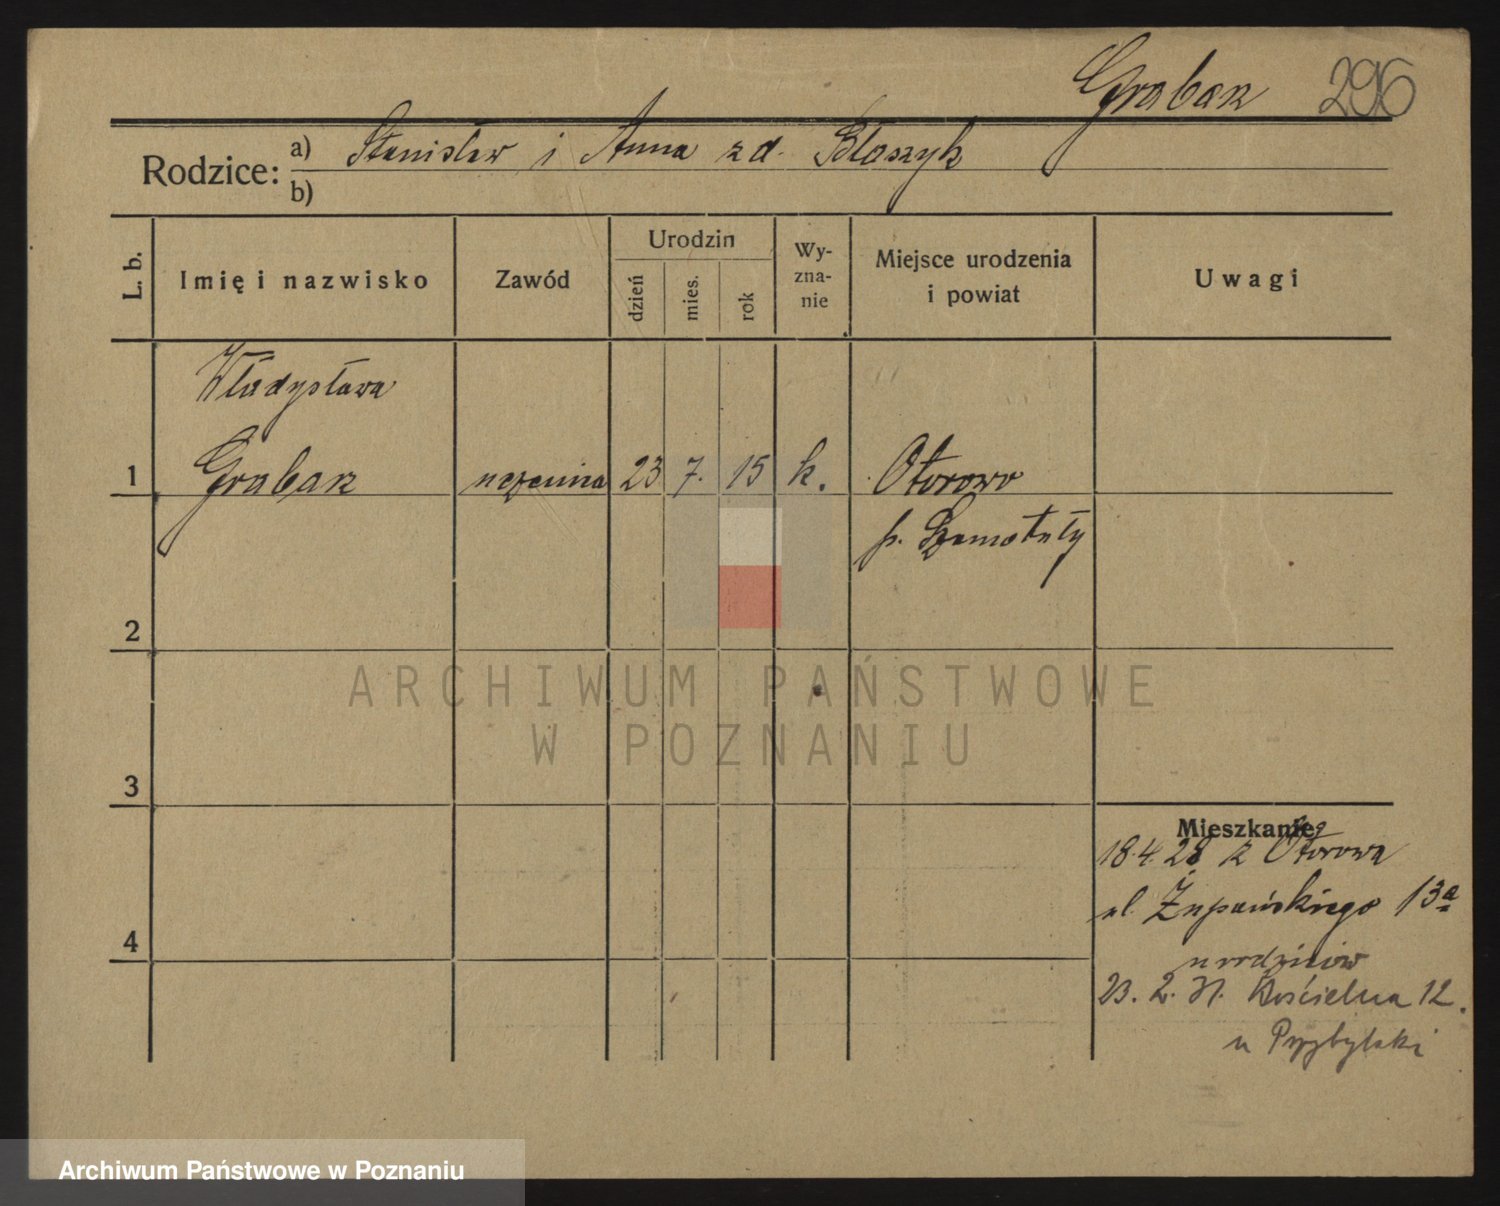 Grabarz 296
Rodzice: a) Stanisław i Anna zd. Błaszyk
b)
L. b. Imię i nazwisko Zawód Urodzin dzień mies. rok Wy-zna-nie Miejsce urodzenia i powiat Uwagi
Władysława
1 Grabarz uczenica 23 7. 15 k. Otorowo
p. Szamotuły
2
ARCHIWUM PAŃSTWOWE
W POZNANIU
3
Mieszkanie
18.4.28 z Otorowa
ul. Żupańskiego 13a
u rodziców
23. 2. 31. Kościelna 12.
u Przybylski
4
Archiwum Państwowe w Poznaniu